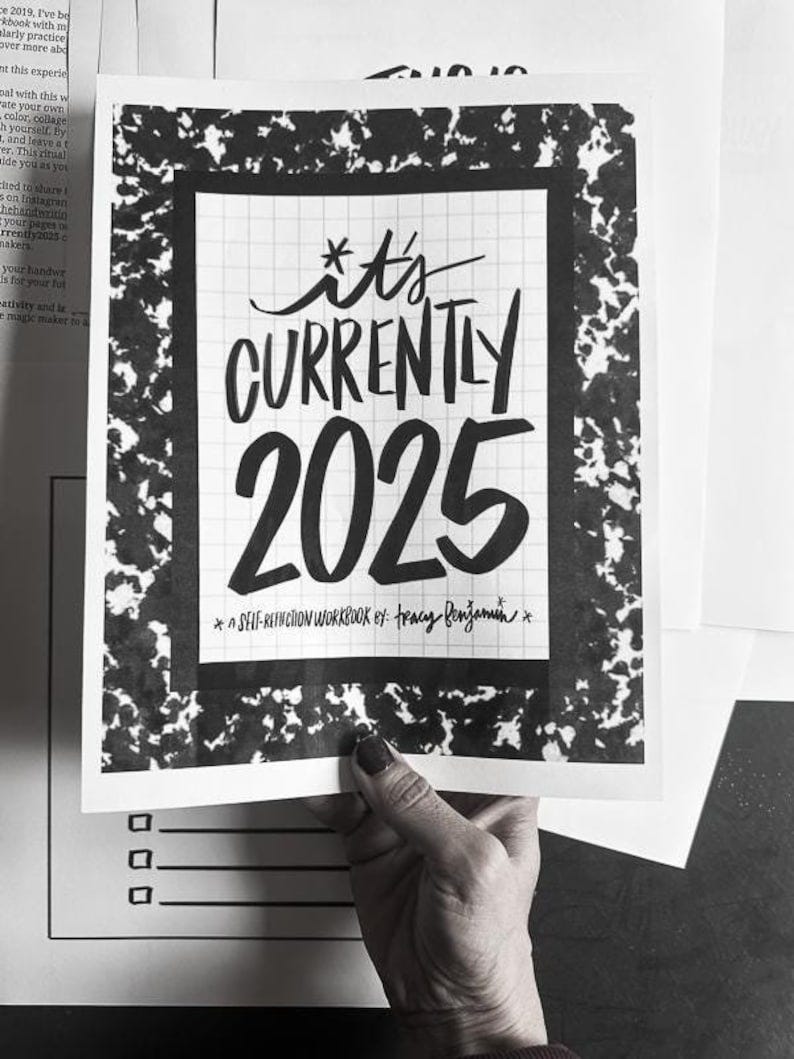 ce 2019, I've be
kbook with m
larly practice
over more abo
nt this experie
oal with this w
vate your own
, color, collage
h yourself. By
t, and leave a t
er. This ritual
uide you as you
cited to share
s on Instagram
thehandwritin
g your pages o
rrently2025 o
makers.
your handwr
ls for your fut
eativity and
e magic maker to a
THIS IS
*it's
CURRENTLY
2025
* A SELF-REFLECTION WORKBOOK BY: tracy Benjamin *